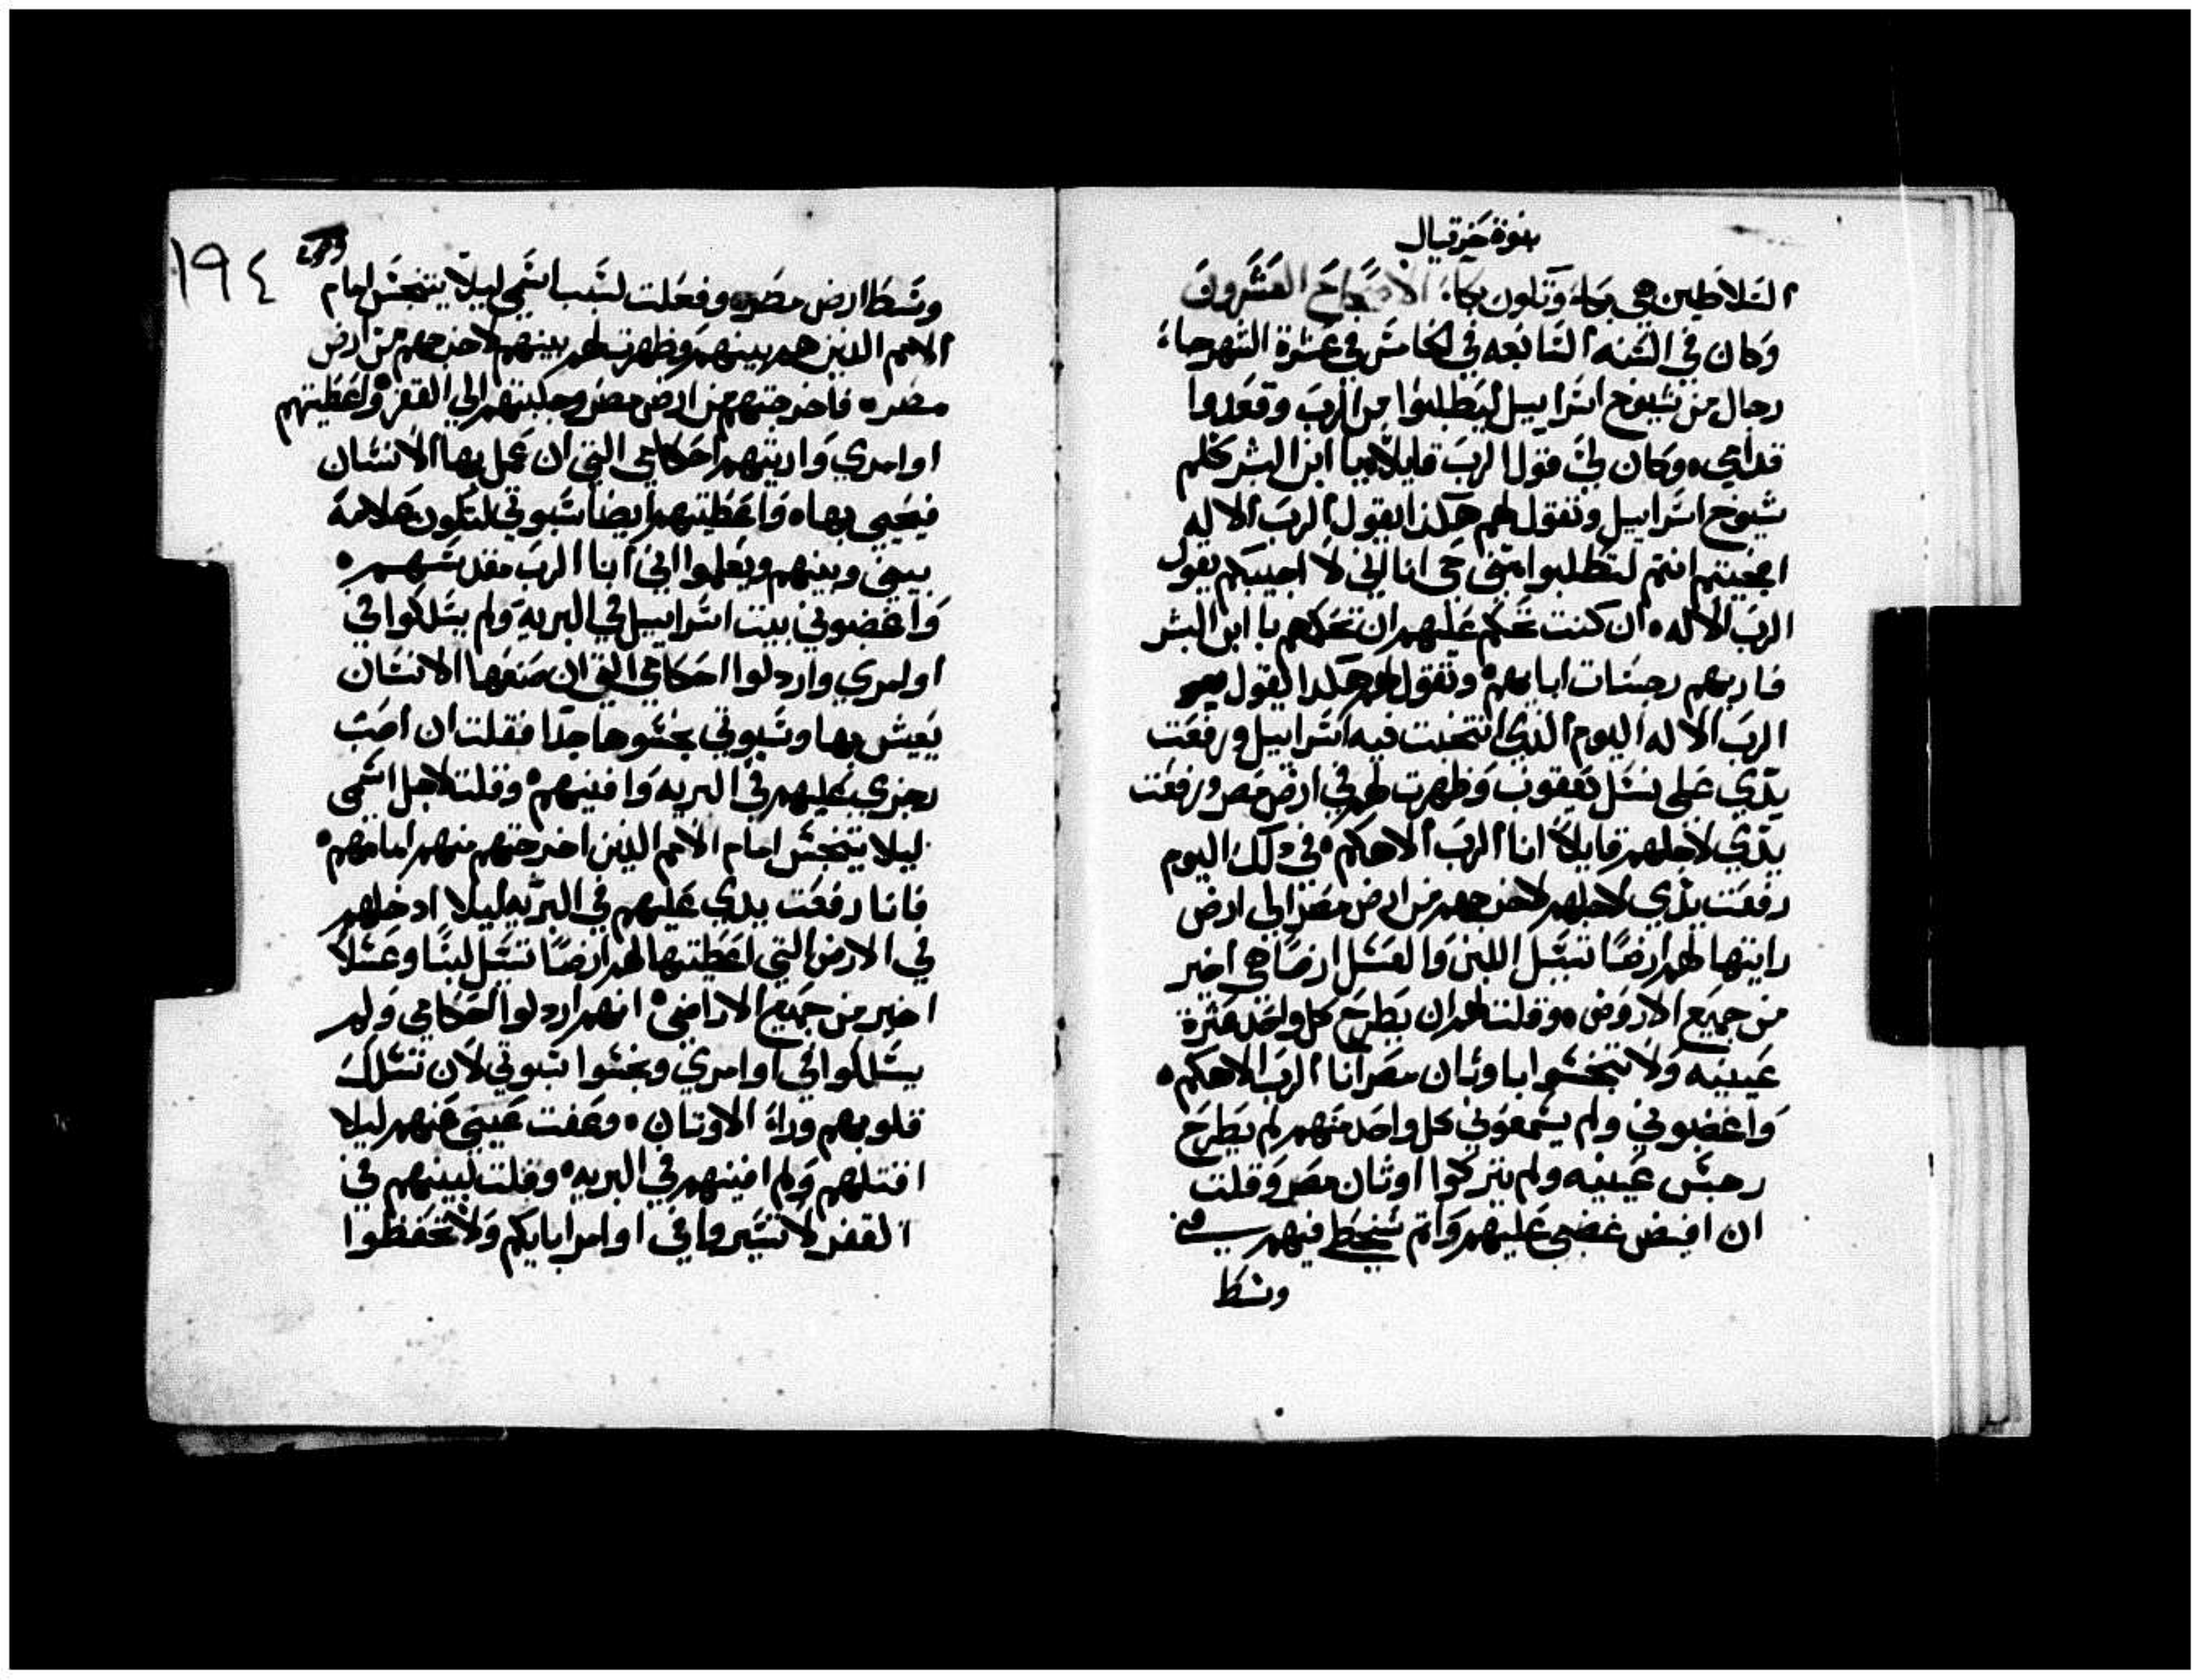 نبوة حزقيال
السلاطين هي بكاء وتكون بكاء الاصحاح العشرون
وكان في السنه السابعه في الخامس في عشرة الشهر جاء
رجال من شيوخ اسراييل ليطلبوا من الرب وقعدوا
قدامي وكان لي قول الرب قايلا يا ابن البشر كلم
شيوخ اسراييل وتقول لهم هكذا يقول الرب الاله
اجيتم انتم لتطلبوا مني حي انا اني لا اجيبكم يقول
الرب الاله ان كنت تحكم عليهم ان تحكم يا ابن البشر
فاريهم رجسات ابايهم وتقول لهم هكدا يقول
الرب الاله اليوم الذي انتخبت فيه اسراييل ورفعت
يدي على نسل يعقوب وظهرت لهم في ارض مصر ورفعت
يدي لاجلهم قايلا انا الرب الاهكم في ذلك اليوم
رفعت يدي لاجلهم لاخرجهم من ارض مصر الي ارض
رايتها لهم ارضا تسيل اللبن والعسل ارضا هي اخير
من جميع الاروض وقلت لهم ان يطرح كل واحد عثرة
عينيه ولا تتنجسوا باوثان مصر انا الرب الاهكم
واغضبوني ولم يسمعوني كل واحد منهم لم يطرح
رجس عينيه ولم يتركوا اوثان مصر وقلت
ان افيض غضبي عليهم واتم سخطي فيهم في
وسط
١٩٤
وسط ارض مصر وفعلت لسبب اسمي ليلا يتنجس امام
الامم الذين هم بينهم وظهرت لهم بينهم لاخرجهم من ارض
مصر فاخرجتهم من ارض مصر وجلبتهم الي القفر واعطيتهم
اوامري واريتهم احكامي التي ان عمل بها الانسان
فيحيى بها واعطيتهم ايضا سبوتي لتكون علامة
بيني وبينهم ويعلموا اني انا الرب مقدسهم
واغضبوني بيت اسراييل في البريه ولم يسلكوا في
اوامري واردلوا احكامي التي ان صنعها الانسان
يعيش بها وسبوتي نجسوها جدا فقلت ان اصب
رجزي عليهم في البريه وافنيهم وقلت لاجل اسمى
ليلا يتنجس امام الامم الذين اخرجتهم منهم امامهم
فانا رفعت يدي عليهم في البريه ليلا ادخلهم
في الارض التي اعطيتها لهم ارضا تسيل لبنا وعسلا
اخير من جميع الاراضي انهم اردلوا احكامي ولم
يسلكوا في اوامري ونجسوا سبوتي لان تسلك
قلوبهم وراء الاوتان وعفت عيني عنهم ليلا
اقتلهم ولم افنيهم في البريه وقلت لبنيهم في
القفر لا تسيروا في اوامر ابايكم ولا تحفظوا